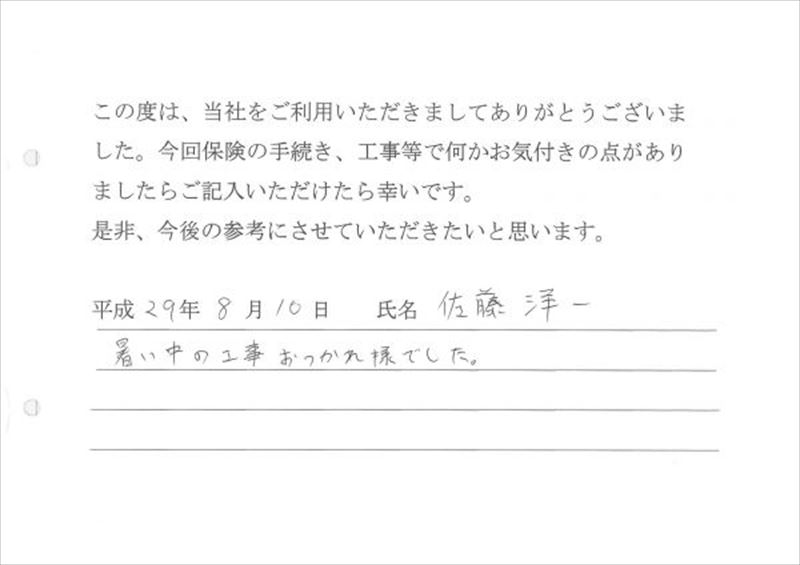 この度は、当社をご利用いただきましてありがとうございま
した。今回保険の手続き、工事等で何かお気付きの点があり
ましたらご記入いただけたら幸いです。
是非、今後の参考にさせていただきたいと思います。
平成 29年 8月10日 氏名 佐藤 洋一
暑い中の工事おつかれ様でした。